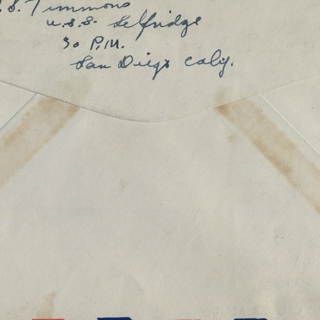 S. Timmons
U.S.S. Selfridge
30 P.M.
San Diego Caly.